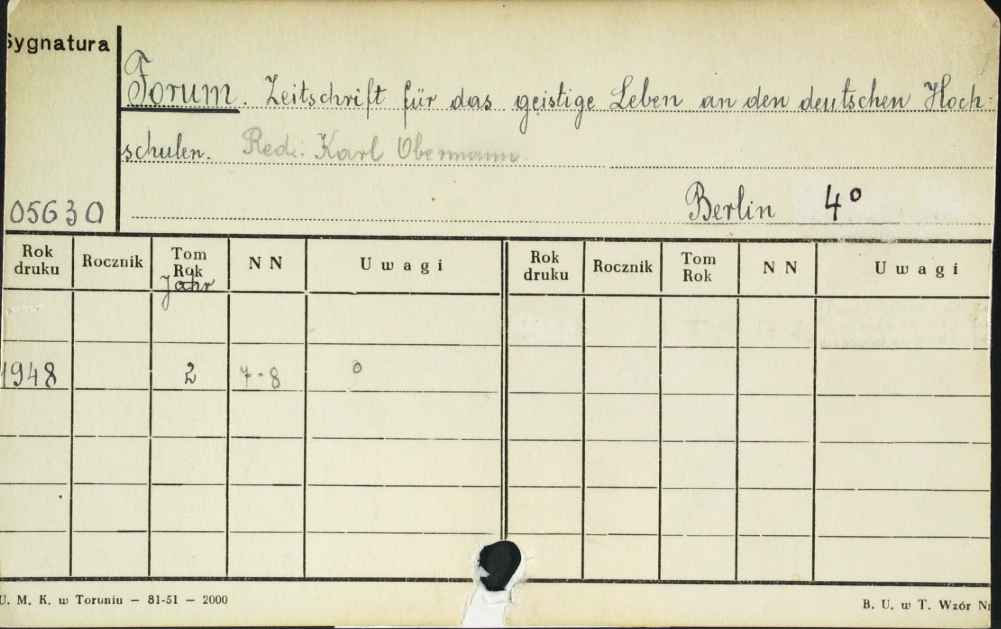 Sygnatura
Forum. Zeitschrift für das geistige Leben an den deutschen Hoch-
schulen. Red.: Karl Obermann
05630
Berlin 4°
Rok druku Rocznik Tom Rok NN Uwagi Rok druku Rocznik Tom Rok NN Uwagi
Jahr
1948 2 7-8 0
U. M. K. w Toruniu — 81-51 — 2000
B. U. w T. Wzór Nr